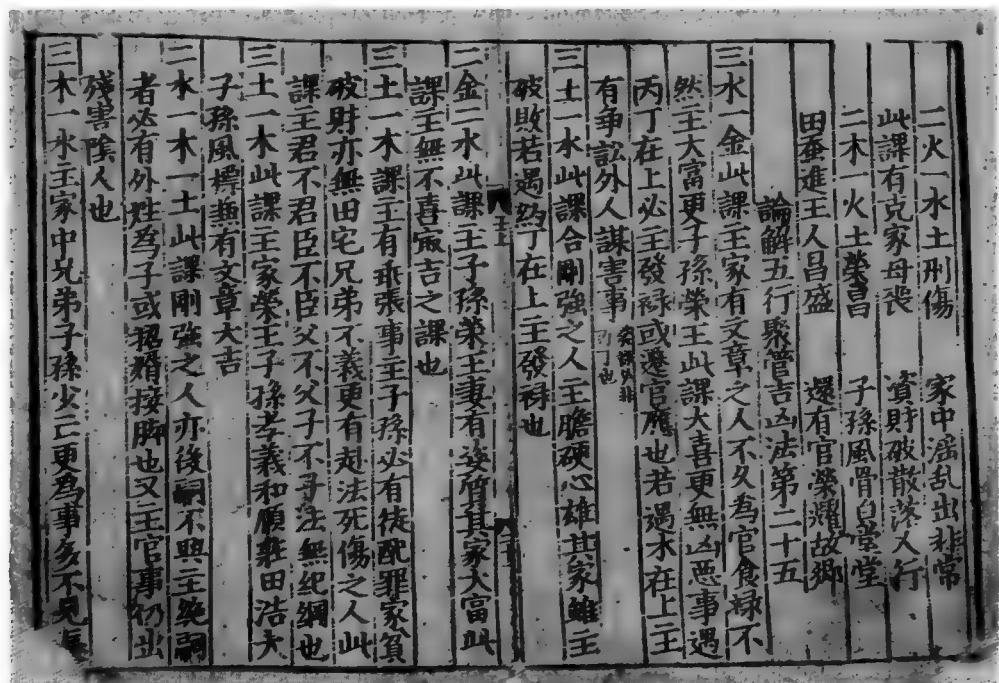 二火一水土刑傷　家中淫乱出非常
此課有克家母丧　資財破散落人行
二木一火土榮昌　子孫風骨自堂堂
田蚕進王人昌盛　還有官榮耀故鄉
論解五行聚管吉凶法第二十五
三水一金此課主家有文章之人不久為官食禄不
然主大富更子孫榮王此課大喜更無凶悪事遇
丙丁在上必主發禄或遷官應也若遇木在上主
有争訟外人謀害事
三土一水此課合剛強之人主膽硬心雄其家雖主
破敗若遇丙丁在上主發禄也
二金二水此課主子孫榮王妻有姿質其家大富此
課主無不喜㝡吉之課也
三土一木課主有乖張事主子孫必有徒配罪家貧
破財亦無田宅兄弟不義更有赴法死傷之人此
課主君不君臣不臣父不父子不子法無紀綱也
三土一木此課主家榮王子孫孝義和順莊田浩大
子孫風標兼有文章大吉
二水一木一土此課剛強之人亦後嗣不興主絶嗣
者必有外姓為子或招婿接脚也又主官事仍出
殘害隂人也
三木一水主家中兄弟子孫少亡更為事多不見